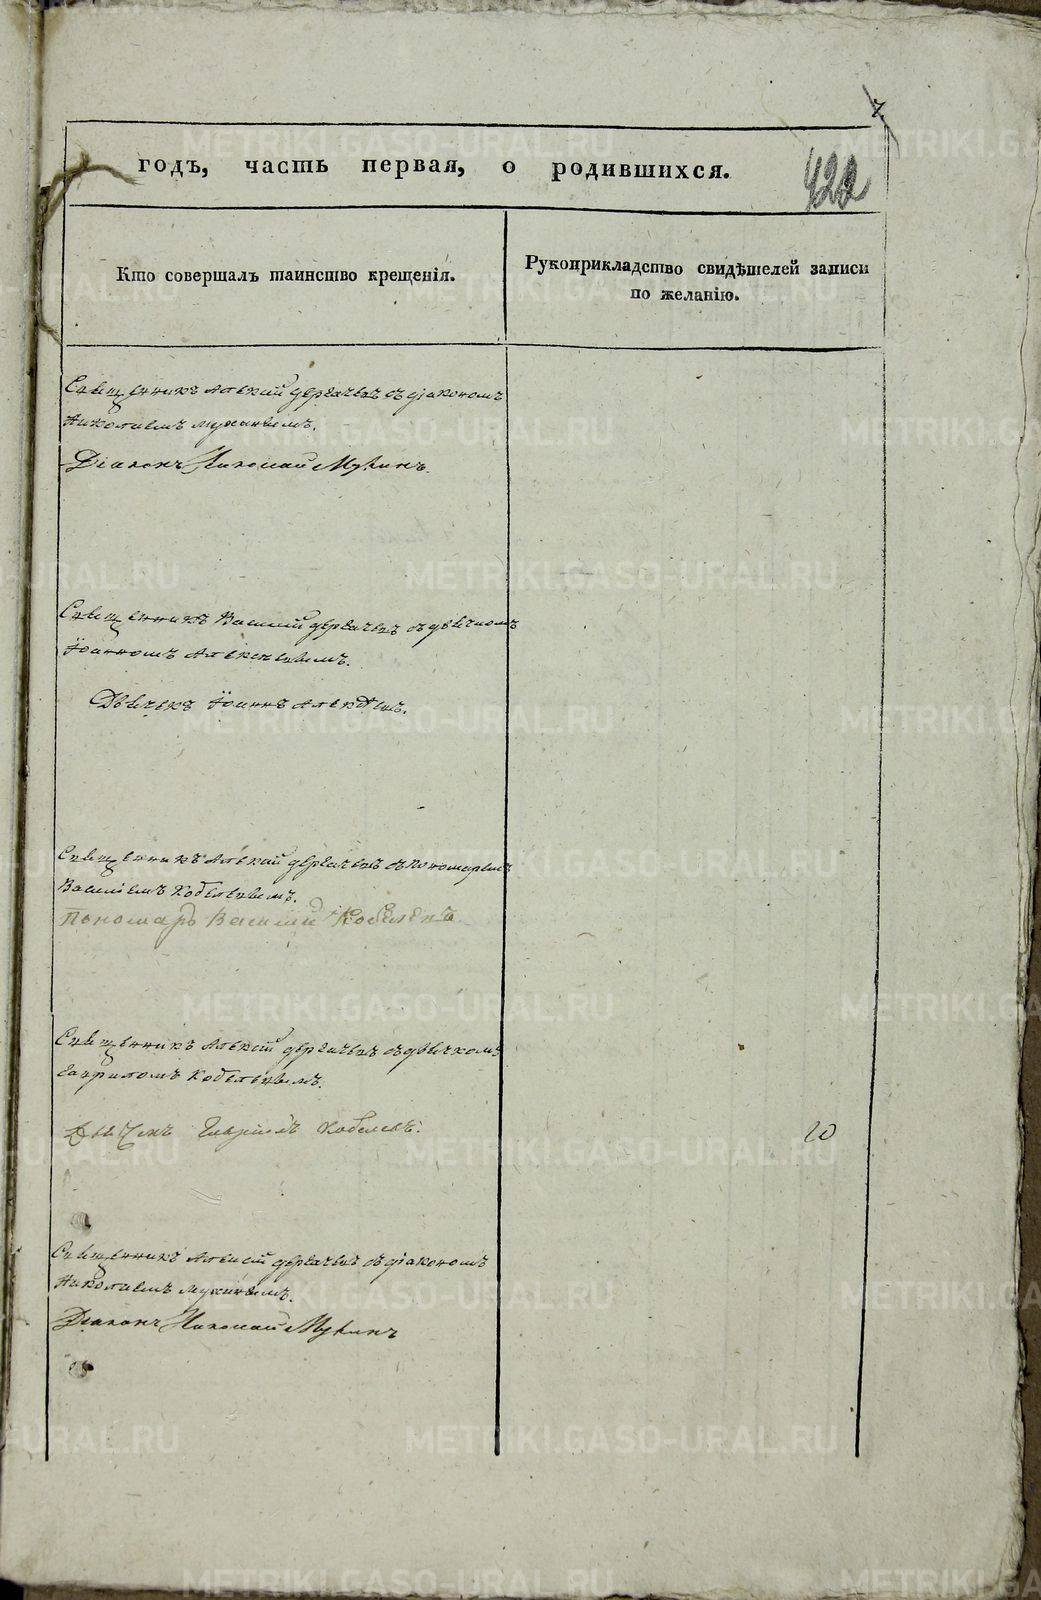 7.
годъ, часть первая, о родившихся.
422
Кто совершалъ таинство крещенія.
Рукоприкладство свидѣтелей записи
по желанію.
Священникъ Алексій Дергачевъ съ діакономъ
Николаемъ Мухинымъ.
Діаконъ Николай Мухинъ.
Священникъ Василій Дергачевъ съ дьячкомъ
Іоанномъ Алексѣевымъ.
Дьячекъ Іоаннъ Алексѣевъ.
Священникъ Алексій Дергачевъ съ пономаремъ
Василіемъ Кобелевымъ.
Пономарь Василий Кобелевъ
Священникъ Алексій Дергачевъ съ дьячкомъ
Гавриломъ Кобелевымъ.
Дьячекъ Гавріилъ Кобелевъ.
20
Священникъ Алексій Дергачевъ съ діакономъ
Николаемъ Мухинымъ.
Діаконъ Николай Мухинъ
METRIKI.GASO-URAL.RU